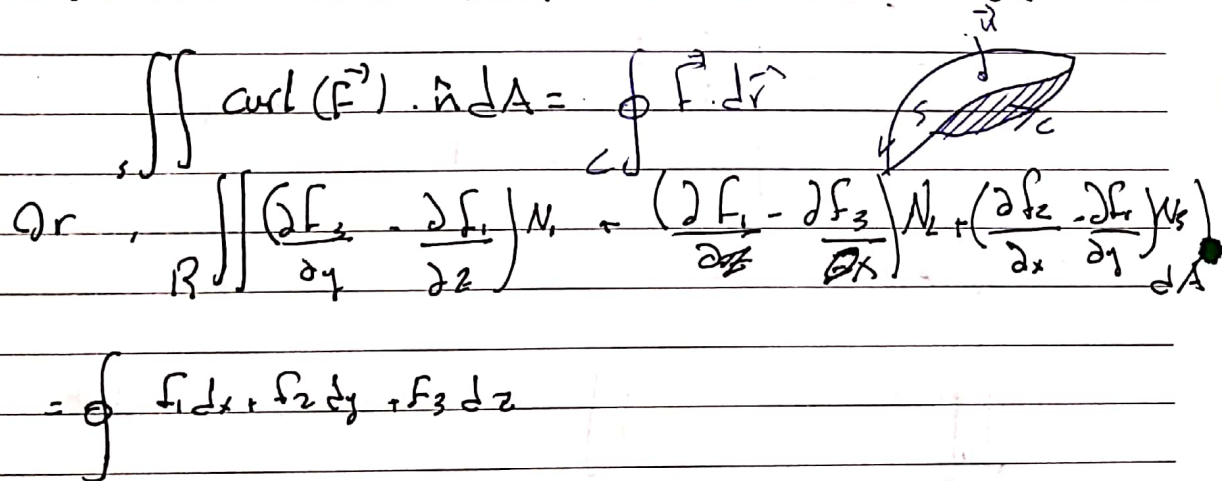 ∬_S curl (F⃗) . n̂ dA = ∮_C F⃗ . dr⃗
n⃗
S
C
Or , ∬_R (∂F₃/∂y - ∂f₁/∂z) N₁ + (∂F₁/∂z - ∂F₃/∂x) N₂ + (∂f₂/∂x - ∂f₁/∂y) N₃) dA
= ∮ f₁dx + f₂dy + f₃dz